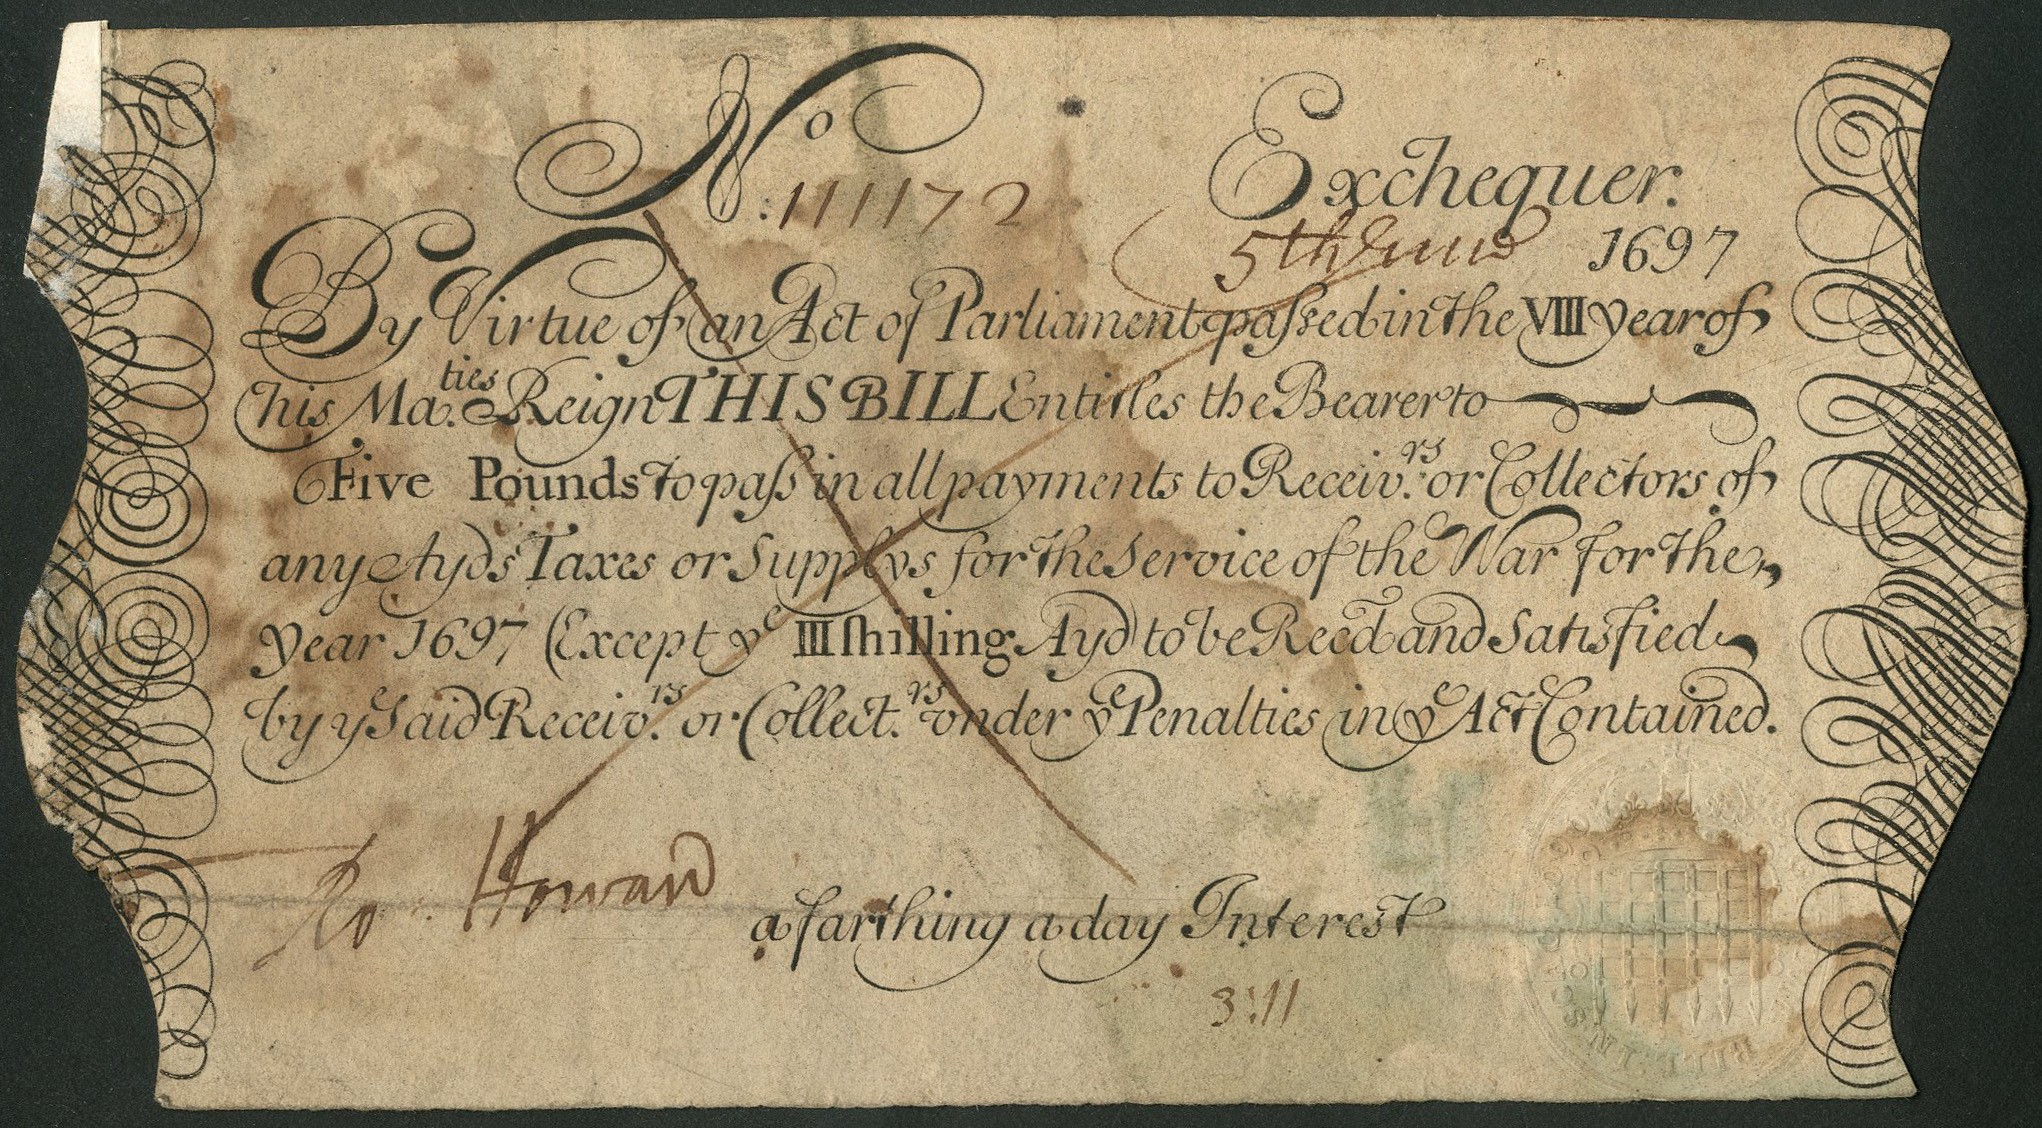 No: 111172
Exchequer.
5th June 1697
By Virtue of an Act of Parliament paſsed in the VIII year of
his Ma.ties Reign THIS BILL Entitles the Bearer to
Five Pounds to paſs in all payments to Receiv.rs or Collectors of
any Ayds Taxes or Supplys for the Service of the War for the
year 1697 (Except ye III ſhilling Ayd) to be Recd and Satisfied
by ye Said Receiv.rs or Collect.rs vnder ye Penalties in ye Act Contained.
Ro: Howard
a farthing a day Interest
3:11